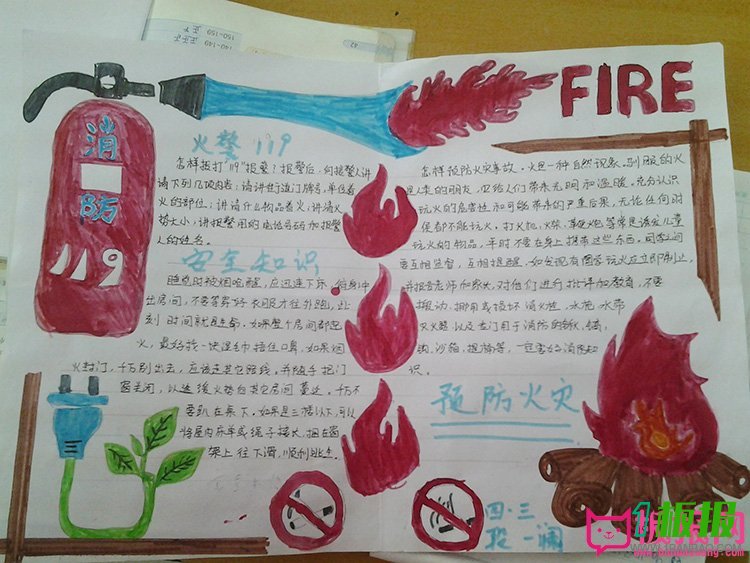 消
防
119
FIRE
火警119
怎样拨打"119"报警？报警后，向接警人讲
请下列几项内容：请讲街道门牌号，单位着
火的部位；讲清什么物品着火；讲清火
势大小；讲报警用的电话号码和报警
人的姓名。
安全知识
睡觉时被烟呛醒，应迅速下床俯身冲
出房间，不要等穿好衣服才往外跑，此
刻时间就是生命，如果整个房间都起
火，最好找一块湿毛巾捂住口鼻，如果烟
火封门，千万别出去，应该走其它路线，并随手把门
窗关闭，以延缓火势向其它房间蔓延，千万不
要趴在床下，如果是三楼以下，可以
将屋内床单或绳子接长，捆在窗
架上往下滑，顺利逃生。
怎样预防火灾事故，火是一种自然现象，驯服的火
是人类的朋友，它给人们带来光明和温暖，充分认识
玩火的危害性和可能带来的严重后果，无论任何时
候都不能玩火，打火机，火柴，鞭炮火等常是诱发儿童
玩火的物品，平时不要在身上携带这些东西，同学之间
要互相监督，互相提醒，如发现有同学玩火应立即制止，
并报告老师和家长，对他们进行批评和教育，不要
搬动、挪用或损坏消火栓，水枪，水带
灭火器以及专门用于消防的锹，镐，
钩，沙箱，提桶等，一定要学消防知
识。
预防火灾
四·三
一澜
板报网